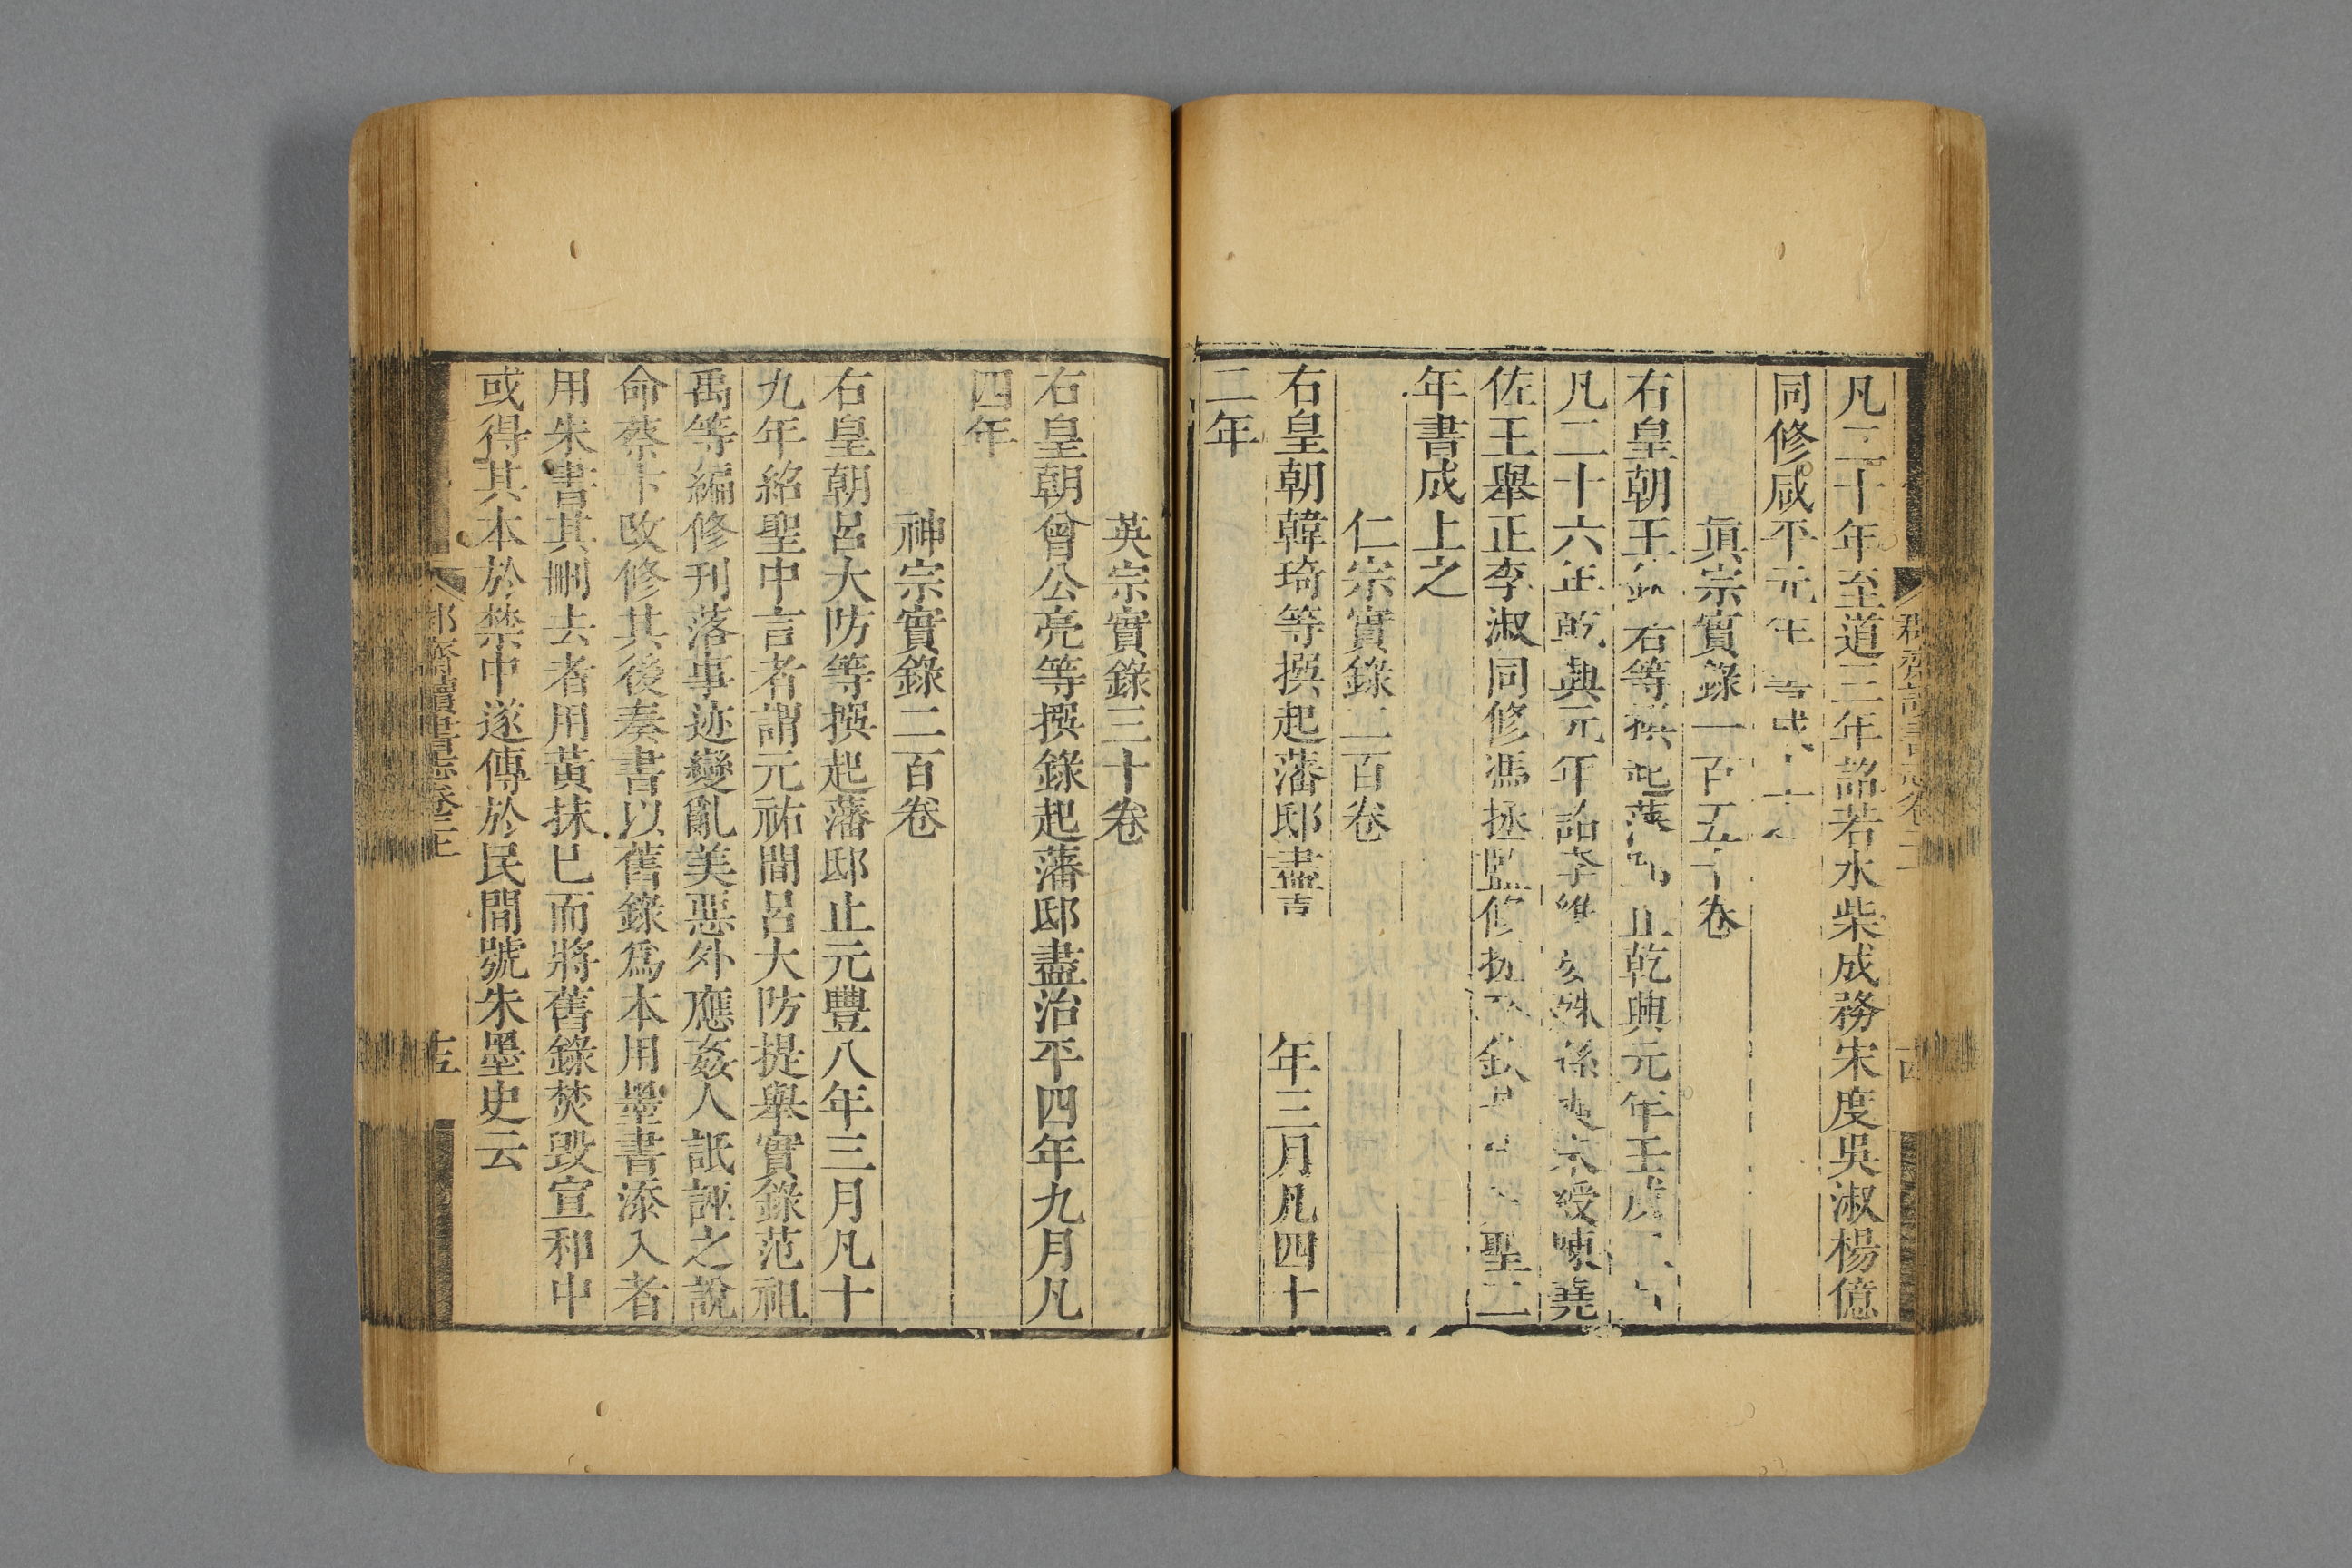 凡二十年至道三年詔若水柴成務宋度吳淑楊億
同修咸平元年書成上之
眞宗實錄一百五十卷
右皇朝王欽若等撰起藩邸止乾興元年壬戌二月
凡二十六年乾興元年詔李維晏殊孫奭宋綬陳堯
佐王舉正李淑同修馮拯監修拯卒欽若代天聖二
年書成上之
仁宗實錄二百卷
右皇朝韓琦等撰起藩邸盡年三月凡四十
二年
英宗實錄三十卷
右皇朝曾公亮等撰錄起藩邸盡治平四年九月凡
四年
神宗實錄二百卷
右皇朝呂大防等撰起藩邸止元豐八年三月凡十
九年紹聖中言者謂元祐間呂大防提舉實錄范祖
禹等編修刊落事迹變亂美惡外應姦人詆誣之說
命蔡卞改修其後奏書以舊錄爲本用墨書添入者
用朱書其刪去者用黃抹已而將舊錄焚毀宣和中
或得其本於禁中遂傳於民間號朱墨史云
齋讀書志卷二上
十五